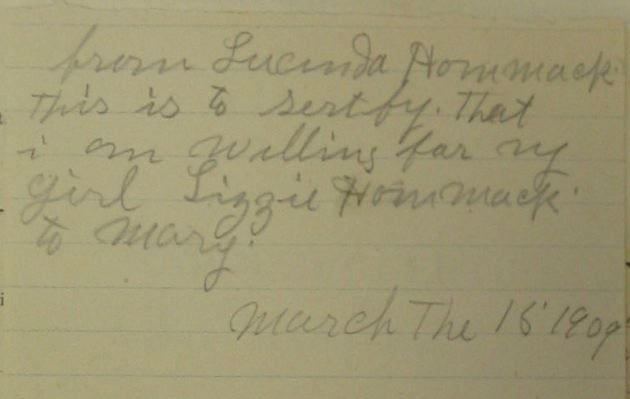 from Lucinda Hommack
this is to sertfy. that
i am willing far my
girl Lizzie Hommack.
to mary.
March The 15 1909